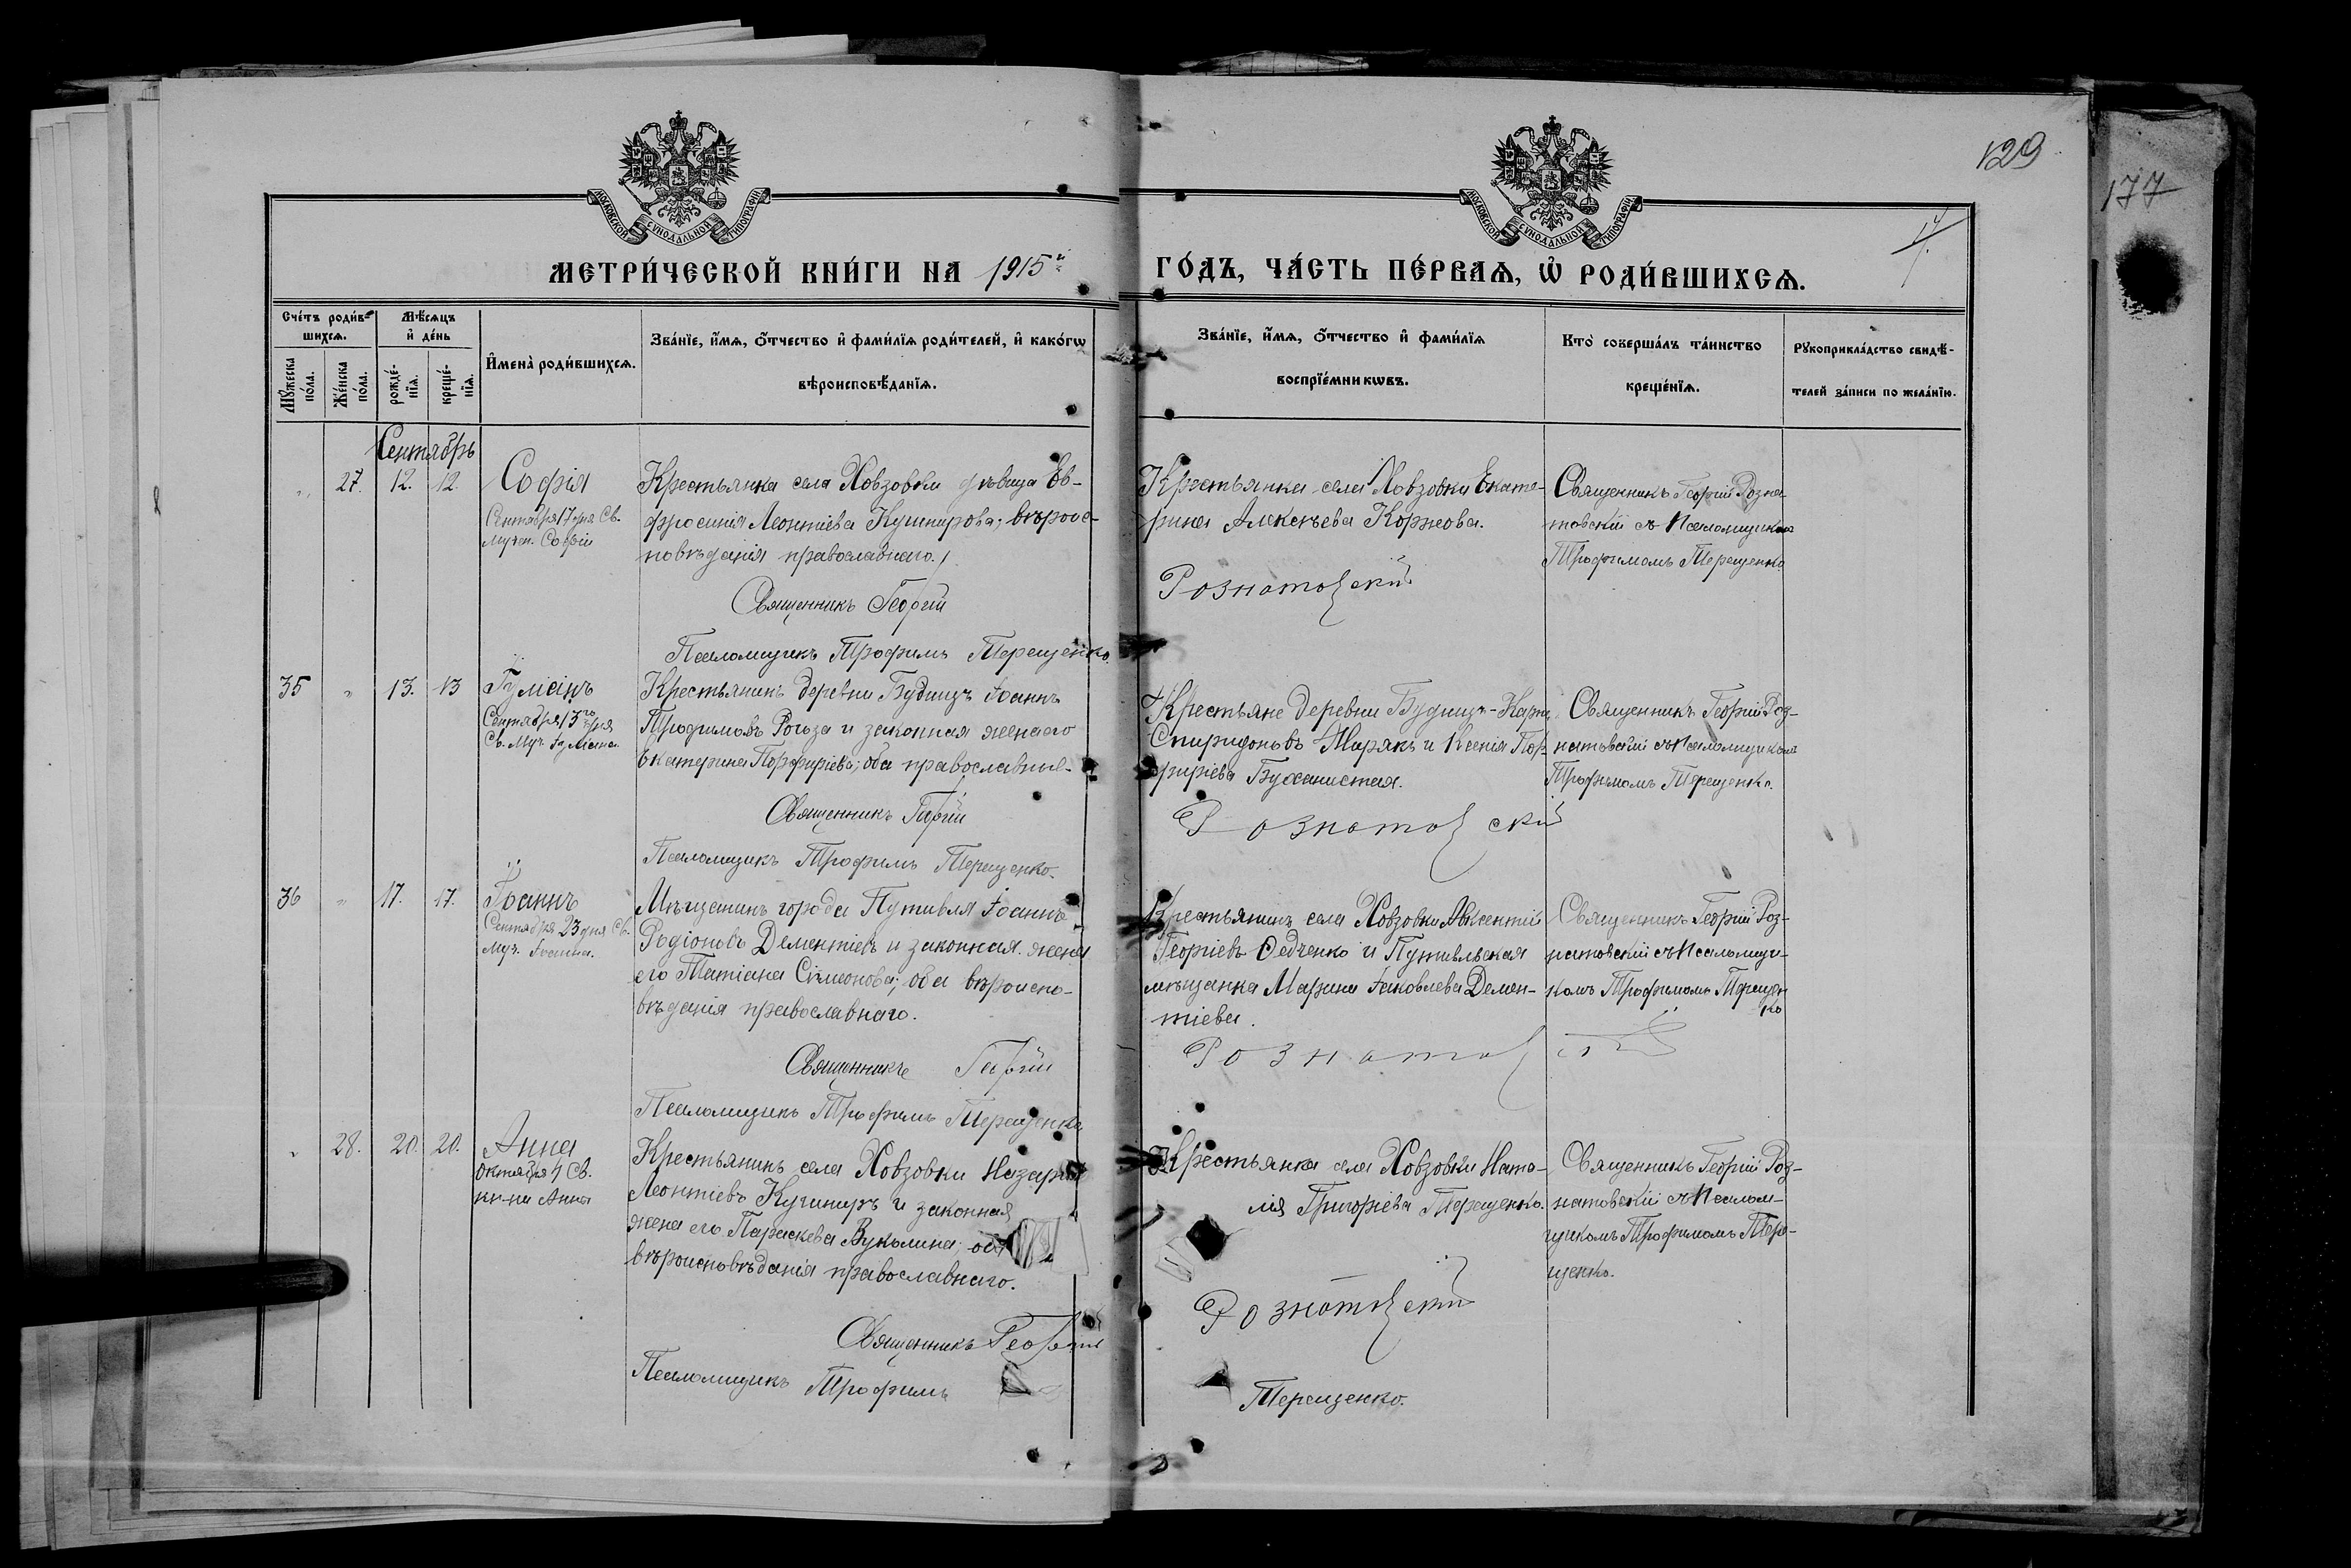 129
177
МОСКОВСКОЙ СѴНОДАЛЬНОЙ ТИПОГРАФІИ
МОСКОВСКОЙ СѴНОДАЛЬНОЙ ТИПОГРАФІИ
МЕТРИ́ЧЕСКОЙ КНИ́ГИ НА 1915й
ГО́ДЪ, ЧА́СТЬ ПЕ́РВАѦ, Ѡ҆ РОДИ́ВШИХСѦ.
Сче́тъ роди́в-
шихсѧ.
Мѣ́сѧцъ
и҆ де́нь
Мꙋ́жеска
по́ла.
Же́нска
по́ла.
рожде́-
нїѧ.
креще́-
нїѧ.
И҆мена̀ роди́вшихсѧ.
Зва́нїе, и҆́мѧ, ѻ҆́тчество и҆ фами́лїѧ роди́телей, и҆ како́гѡ
вѣроисповѣ́данїѧ.
Зва́нїе, и҆́мѧ, ѻ҆́тчество и҆ фами́лїѧ
воспрїе́мникѡвъ.
Кто̀ соверша́лъ та́инство
креще́нїѧ.
Рꙋкоприкла́дство свидѣ́-
телей за́писи по жела́нїю.
Сентябрь
„ 27. 12. 12.
Софія
Сентября 17 дня Св.
Мучен. Софіи
Крестьянка села Ховзовки дѣвица Ев-
фросинія Леонтіева Кушнирова; вѣроис-
повѣданія православнаго.
Священникъ Георгій
Псаломщикъ Трофимъ Терещенко.
Крестьянка села Ховзовки Екате-
рина Алексѣева Коржова.
Розnатовскій
Священникъ Георгій Розна-
товскій съ Псаломщикомъ
Трофимомъ Терещенко
35 „ 13. 13
Іуліанъ
Сентября 13го дня
Св. Муч. Іуліана.
Крестьянинъ деревни Будищъ Іоаннъ
Трофимовъ Рогоза и законная жена его
Екатерина Порфиріева; оба православные
Священникъ Георгій
Псаломщикъ Трофимъ Терещенко.
Крестьяне деревни Будищъ-Карпъ
Спиридоновъ и Ксенія Пор-
фиріева
Розnатовскій
Священникъ Георгій Роз-
натовскій съ Псаломщикомъ
Трофимомъ Терещенко.
36 „ 17. 17.
Іоаннъ
Сентября 23 дня Св.
Муч. Іоанна.
Мѣщанинъ города Путивля Іоаннъ
Родіоновъ Дементіевъ и законная жена
его Татіана Сѵмеонова; оба вѣроиспо-
вѣданія православнаго.
Священникъ Георгій
Псаломщикъ Трофимъ Терещенко
Крестьянинъ села Ховзовки Авксентій
Георгіевъ Федченко и Путивльская
мѣщанка Марина Іаковлева Демен-
тіева.
Розnатовскій
Священникъ Георгій Роз-
натовскій съ Псаломщи-
комъ Трофимомъ Терещен
ко
„ 28. 20. 20.
Анна
Октября 4 Св.
Анны
Крестьянинъ села Ховзовки Назарій
Леонтіевъ Кушниръ и законная
жена его Параскева Вуколина; оба
вѣроисповѣданія православнаго.
Священникъ Георгій
Псаломщикъ Трофимъ
Крестьянка села Ховзовки Ната-
лія Григоріева Терещенко.
Розnатовскій
Терещенко.
Священникъ Георгій Роз-
натовскій съ Псалом-
щикомъ Трофимомъ Тере-
щенко.